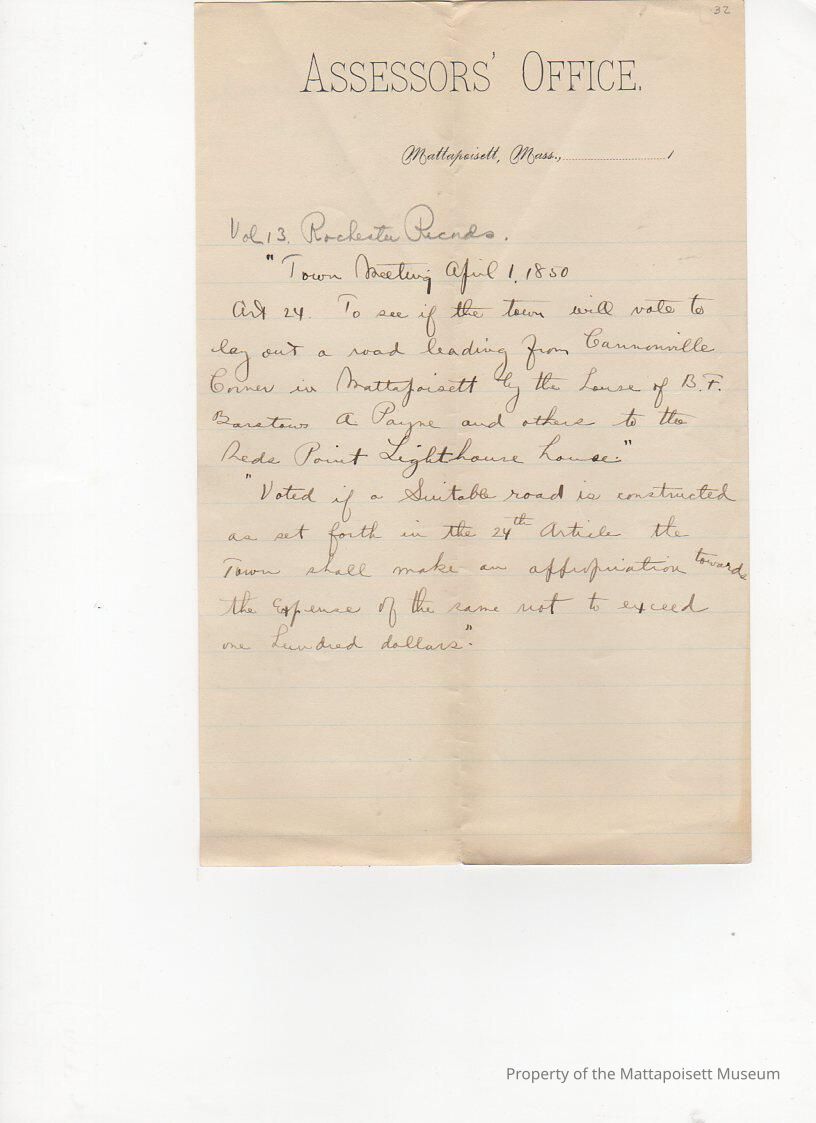 32
ASSESSORS' OFFICE.
Mattapoisett, Mass., 1
Vol 13. Rochester Records.
"Town Meeting April 1, 1850
Art 24. To see if the town will vote to
lay out a road leading from Cannonville
Corner in Mattapoisett by the house of B. F.
Barstows A Payne and others to the
Neds Point Lighthouse house."
"Voted if a Suitable road is constructed
as set forth in the 24th Article the
Town shall make an appropriation towards
the Expense of the same not to exceed
one hundred dollars."
Property of the Mattapoisett Museum